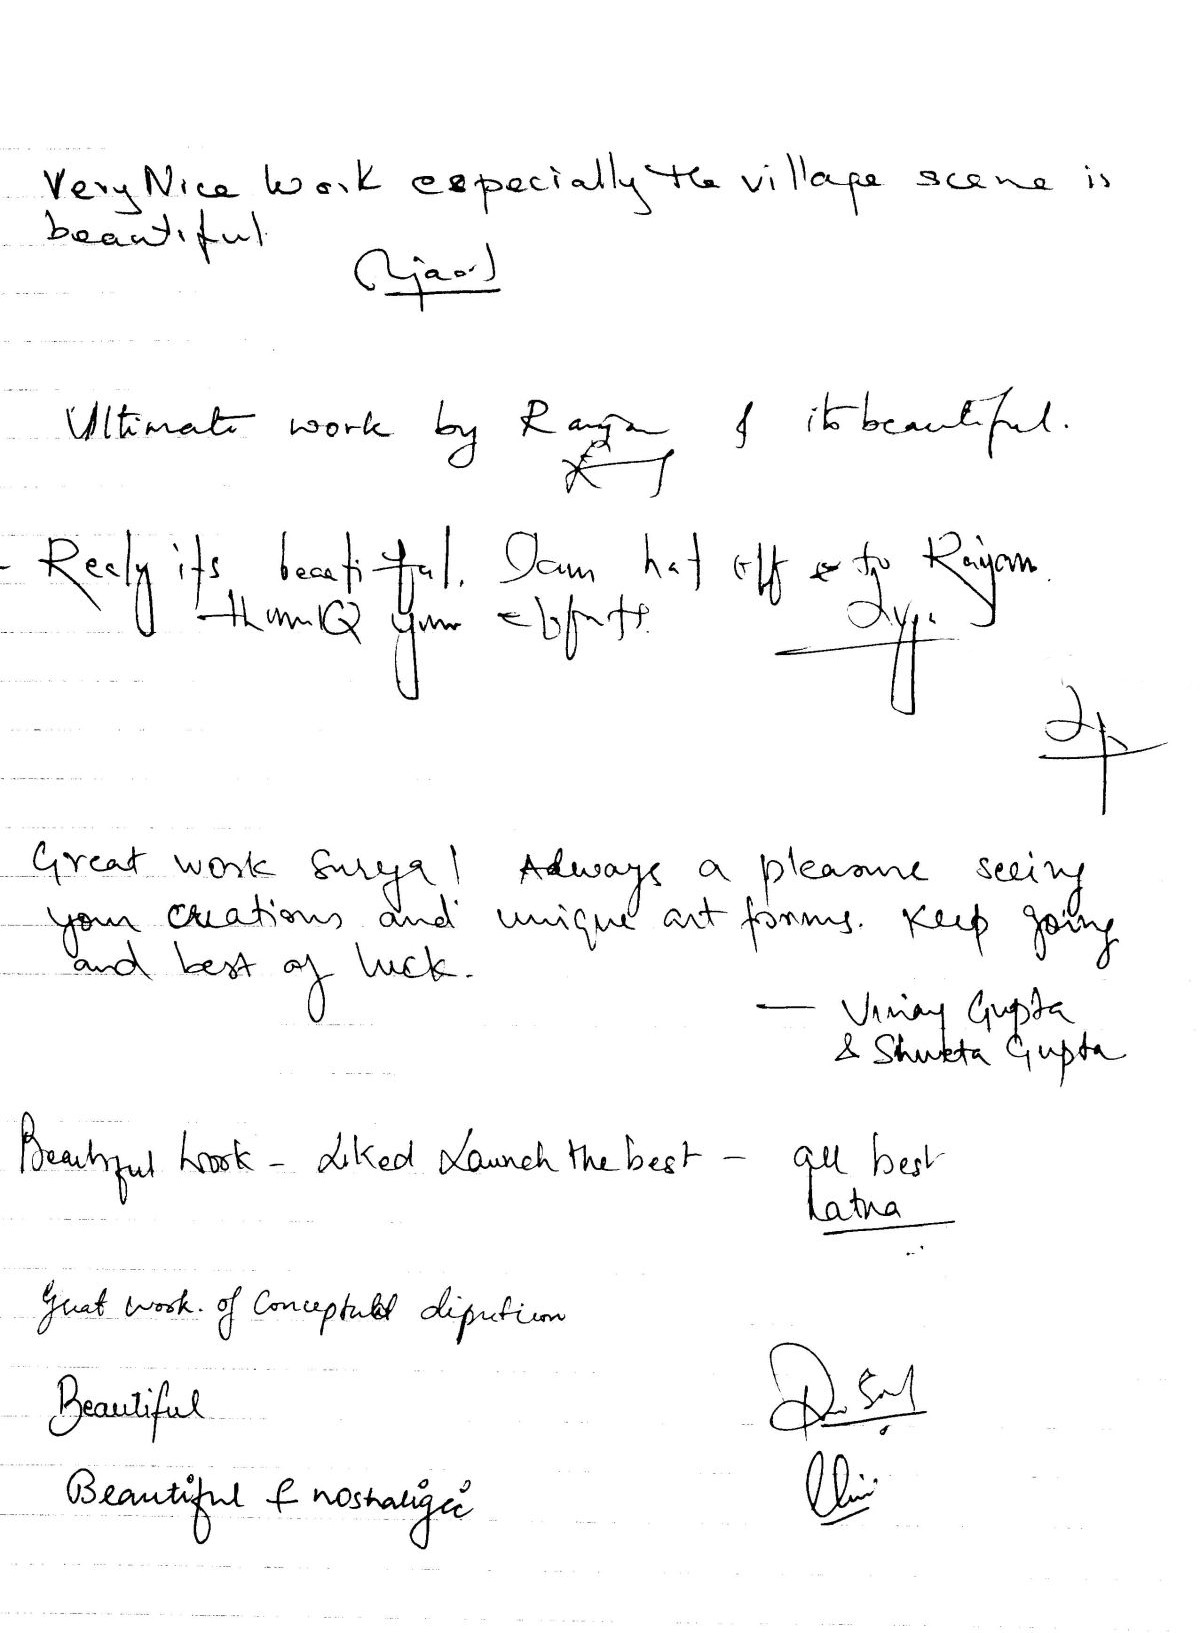 Very Nice work especially the village scene is
beautiful.
Ultimate work by Ranjan & its beautiful.
Realy its beautiful. I am hat off to Ranjan.
thanQ your efforts.
Great work Surya! Always a pleasure seeing
your creations and unique art forms. Keep going
and best of luck.
— Vinay Gupta
& Shweta Gupta
Beautiful work - Liked Launch the best - all best
Latha
great work. of Conceptual
Beautiful
Beautiful & nostaligic